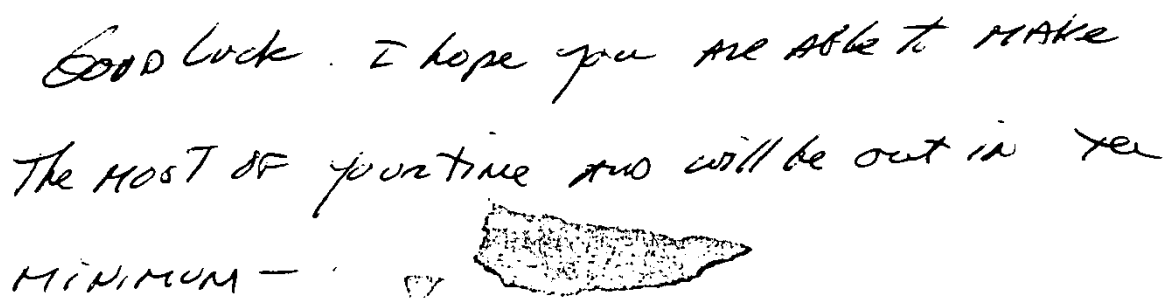 Good luck. I hope you are able to make
the most of your time and will be out in
minimum –